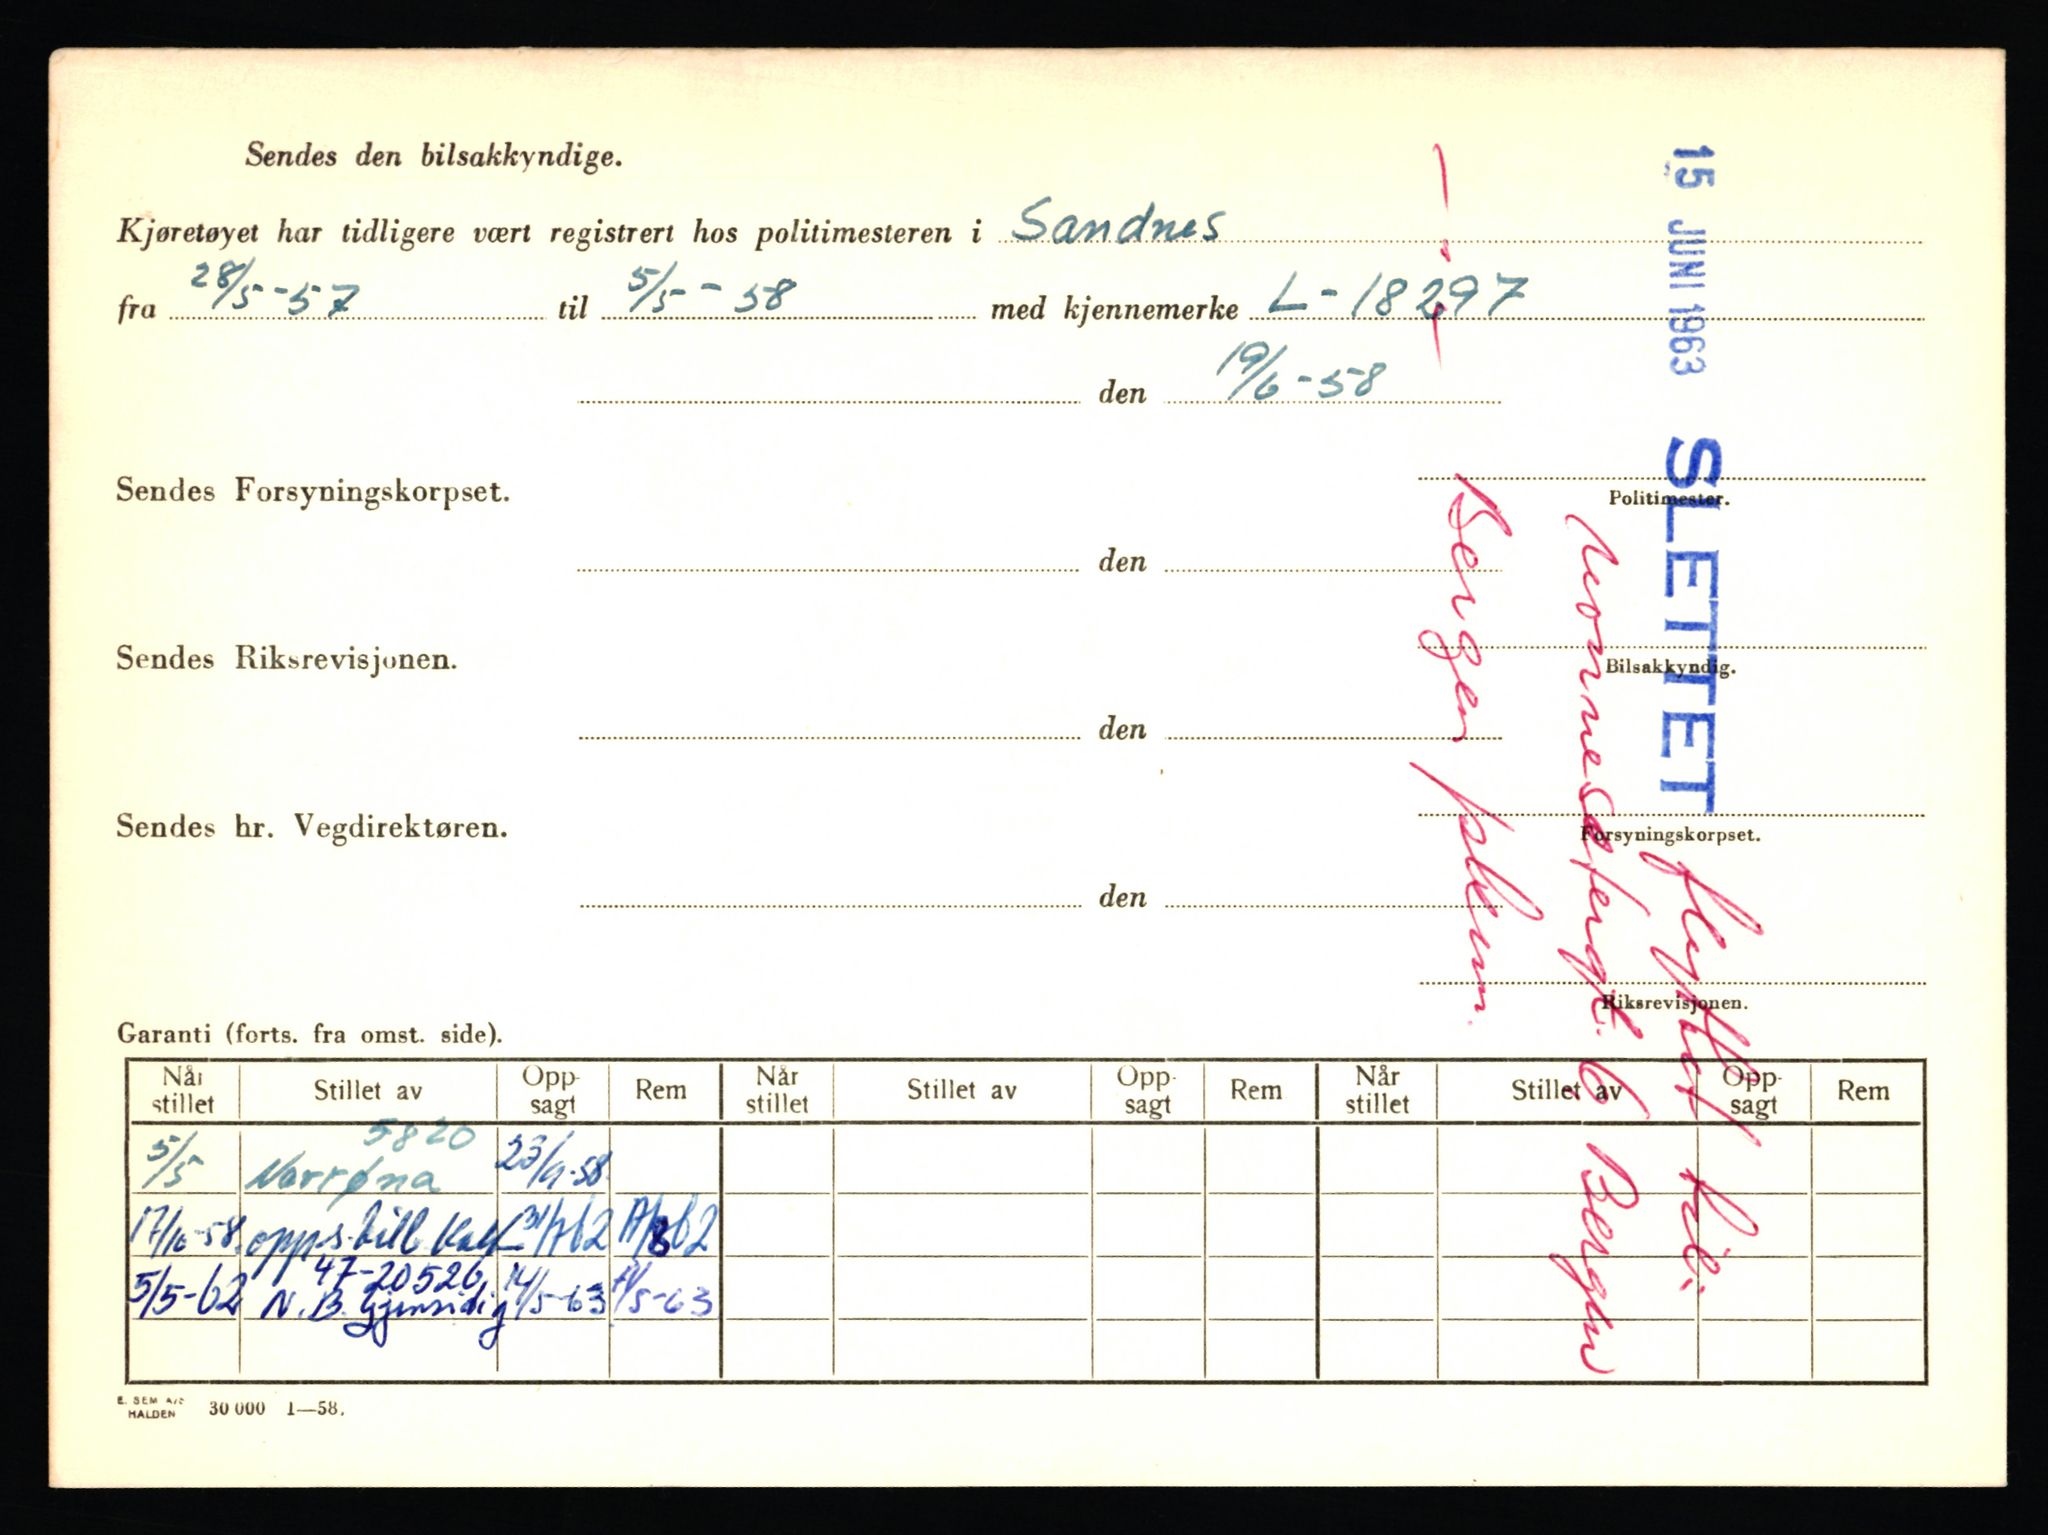 Sendes den bilsakkyndige.
Kjøretøyet har tidligere vært registrert hos politimesteren i Sandnes
fra 28/5-57 til 5/5-58 med kjennemerke L-18297
den 19/6-58
Politimester.
Sendes Forsyningskorpset.
den
Bilsakkyndig.
Sendes Riksrevisjonen.
den
Forsyningskorpset.
Sendes hr. Vegdirektøren.
den
Riksrevisjonen.
15 JUNI 1963 SLETTET
flyttet til:
6 Bergen
Bergen
Garanti (forts. fra omst. side).
Når stillet Stillet av Oppsagt Rem Når stillet Stillet av Oppsagt Rem Når stillet Stillet av Oppsagt Rem
5820
5/5 Norrøna 23/9-58
17/10-58
47-20526
5/5-62 N.B. Gjensidig 14/5-63
E. SEM A/S
HALDEN 30 000 1—58.